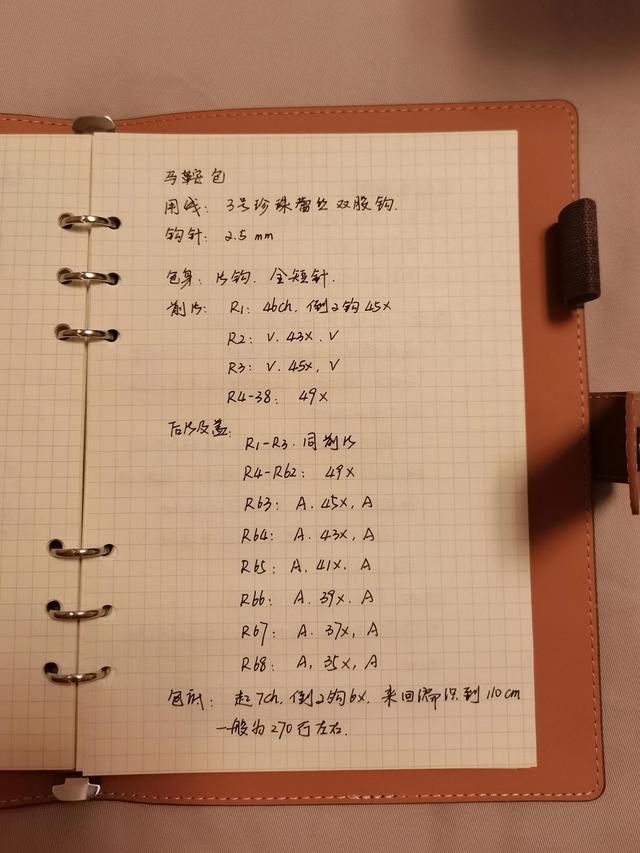 马鞍包
用线：3号珍珠蕾丝双股钩.
钩针：2.5mm
包身：片钩.全短针.
前片：R1：46ch,倒2钩45X
R2：V.43X.V
R3：V.45X,V
R4-38：49X
后片及盖：
R1-R3.同前片
R4-R62：49X
R63：A.45X,A
R64：A.43X,A
R65：A.41X.A
R66：A.39X.A
R67：A.37X,A
R68：A,35X,A
包底：起7ch,倒2钩6X,来回编织到110cm
一般为270行左右.